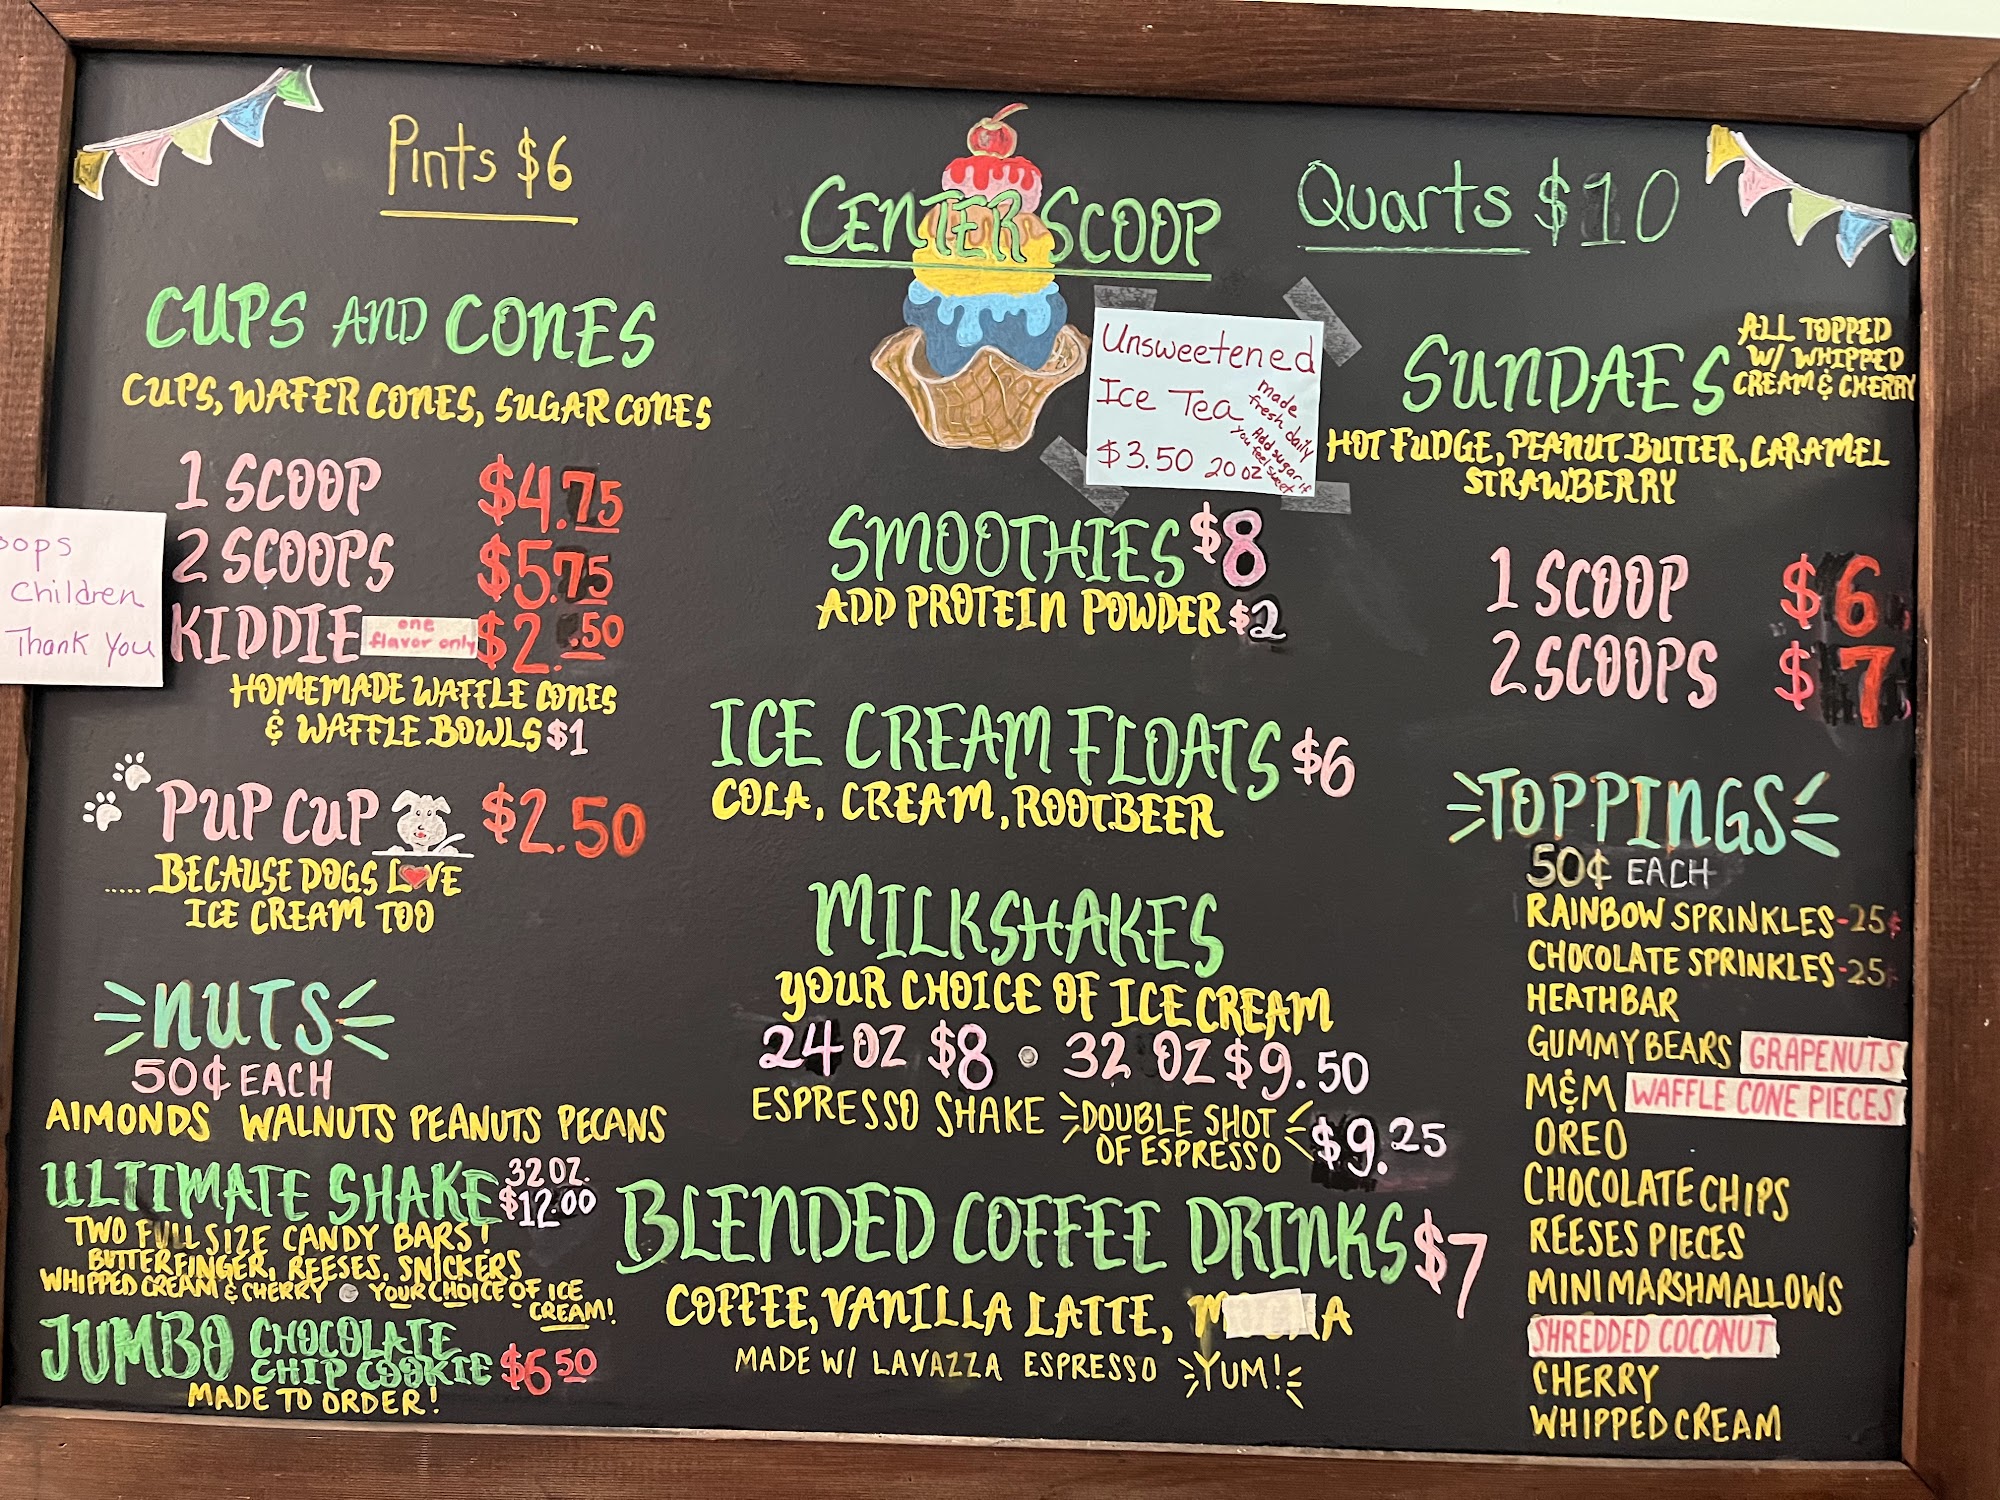 Pints $6
CENTER SCOOP
Quarts $10
CUPS AND CONES
CUPS, WAFER CONES, SUGAR CONES
1 SCOOP $4.75
2 SCOOPS $5.75
KIDDIE one flavor only $2.50
HOMEMADE WAFFLE CONES
& WAFFLE BOWLS $1
Children
Thank You
PUP CUP $2.50
..... BECAUSE DOGS LOVE
ICE CREAM TOO
NUTS
50¢ EACH
AlMONDS WALNUTS PEANUTS PECANS
ULTIMATE SHAKE 32 OZ. $12.00
TWO FULL SIZE CANDY BARS!
BUTTERFINGER, REESES, SNICKERS
WHIPPED CREAM & CHERRY • YOUR CHOICE OF ICE
CREAM!
JUMBO CHOCOLATE
CHIP COOKIE $6.50
MADE TO ORDER!
Unsweetened
Ice Tea
$3.50 20 oz
made
fresh daily
Add sugar if
you feel sweet
SMOOTHIES $8
ADD PROTEIN POWDER $2
ICE CREAM FLOATS $6
COLA, CREAM, ROOTBEER
MILKSHAKES
YOUR CHOICE OF ICE CREAM
24 OZ $8 • 32 OZ $9.50
ESPRESSO SHAKE DOUBLE SHOT
OF ESPRESSO $9.25
BLENDED COFFEE DRINKS $7
COFFEE, VANILLA LATTE,
MADE W/ LAVAZZA ESPRESSO YUM!
SUNDAES
ALL TOPPED
W/ WHIPPED
CREAM & CHERRY
HOT FUDGE, PEANUT BUTTER, CARAMEL
STRAWBERRY
1 SCOOP $6
2 SCOOPS $7
TOPPINGS
50¢ EACH
RAINBOW SPRINKLES-25¢
CHOCOLATE SPRINKLES-25¢
HEATHBAR
GUMMY BEARS GRAPENUTS
M&M WAFFLE CONE PIECES
OREO
CHOCOLATE CHIPS
REESES PIECES
MINI MARSHMALLOWS
SHREDDED COCONUT
CHERRY
WHIPPED CREAM